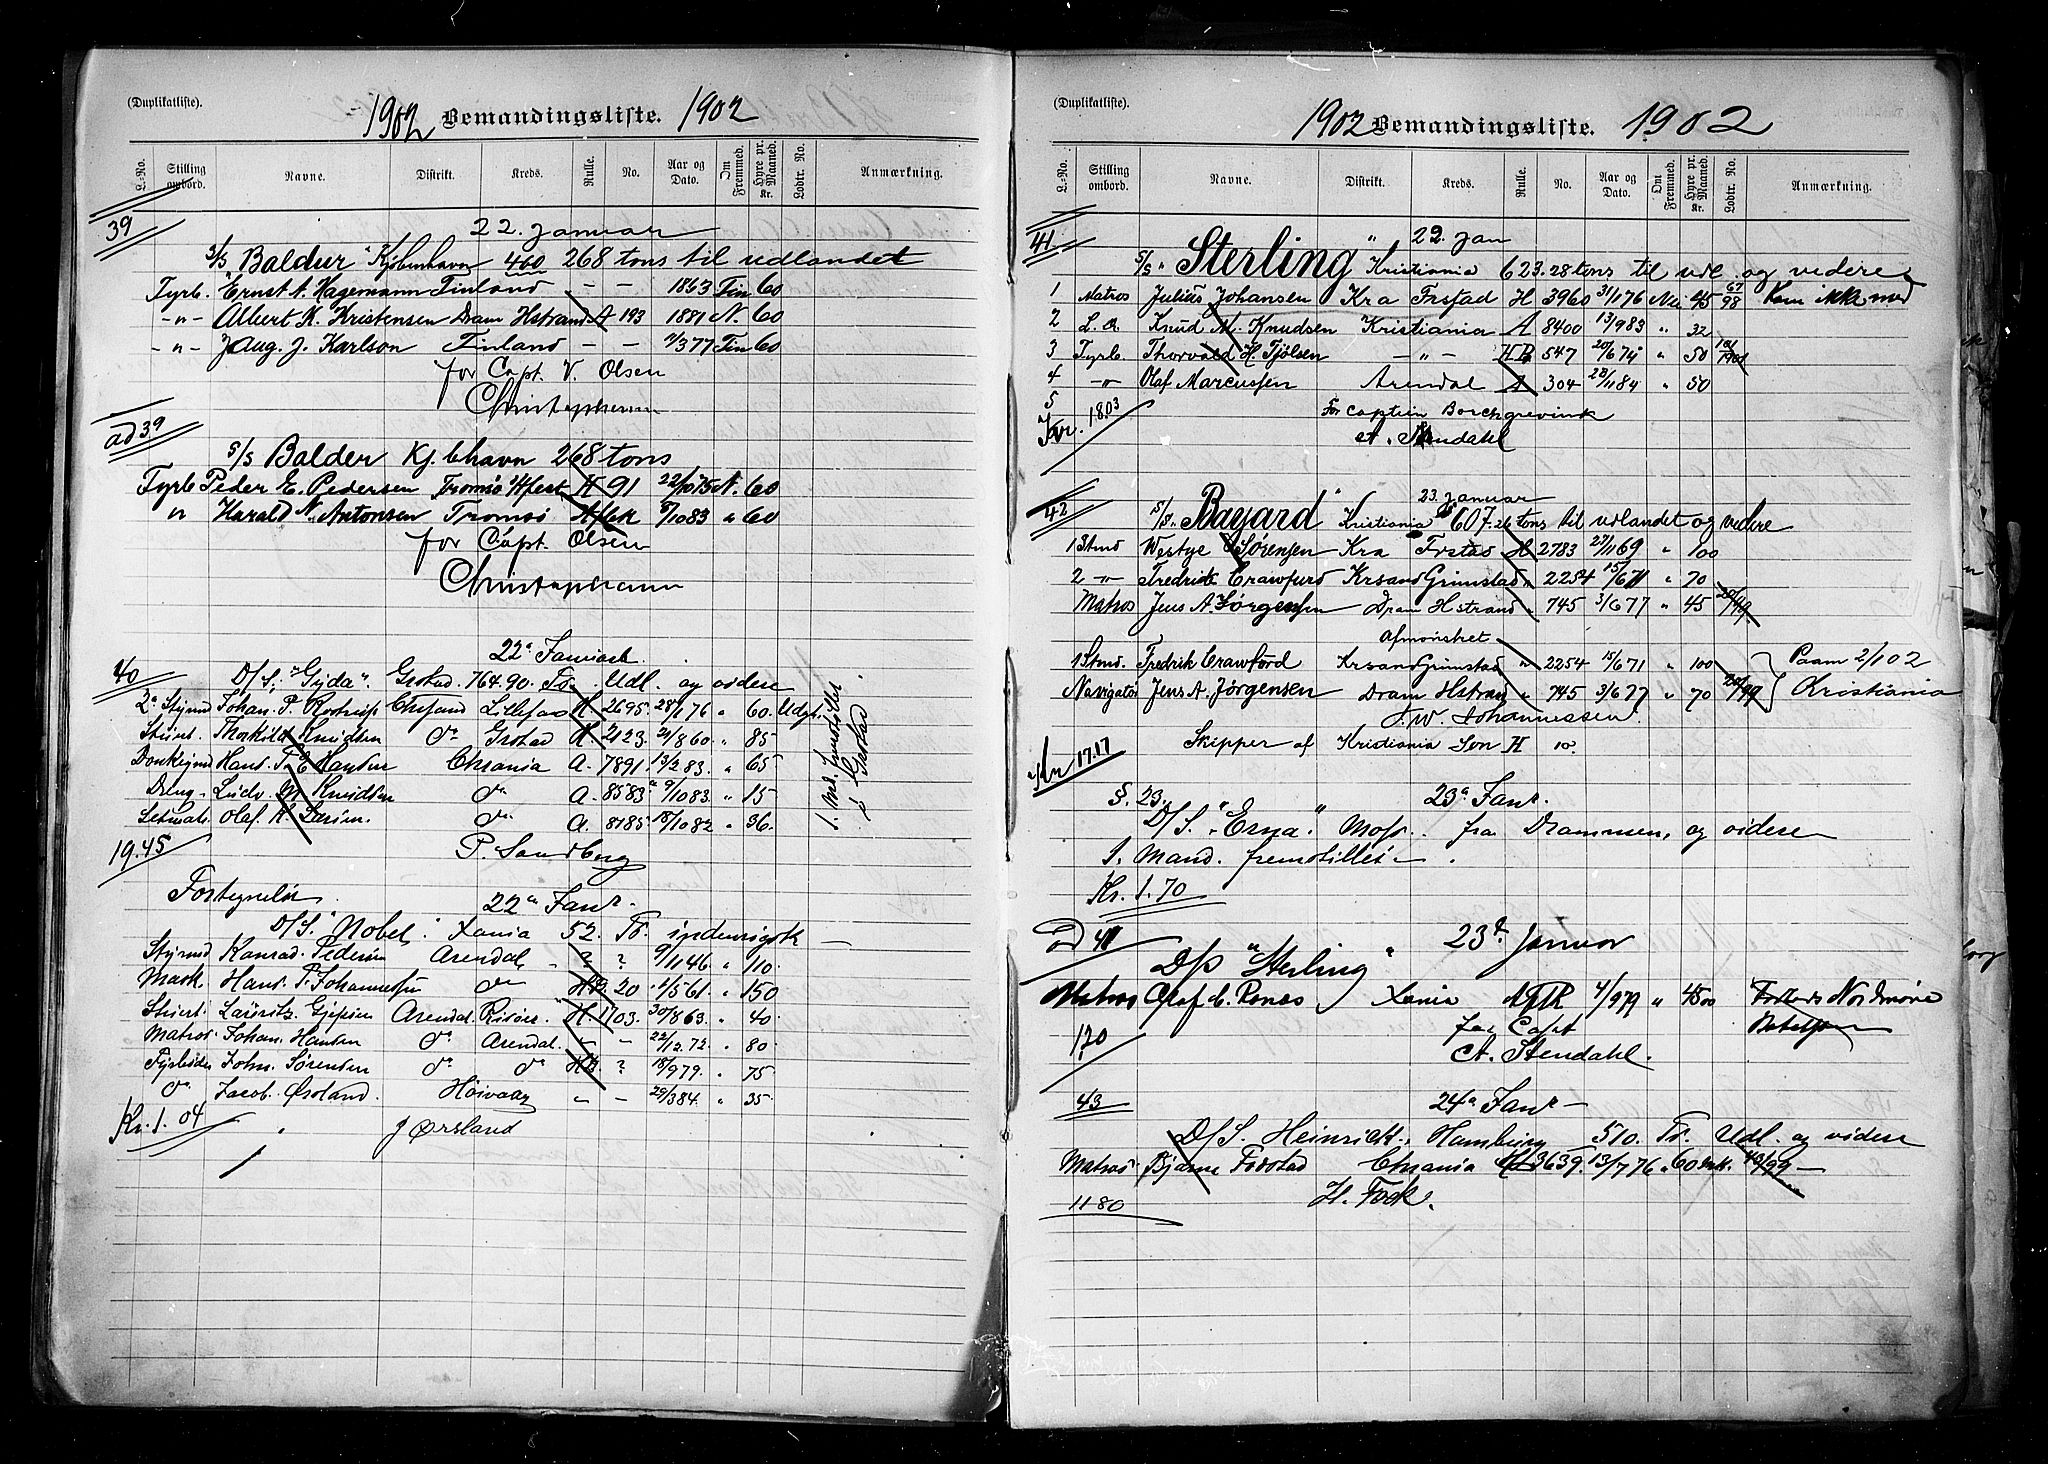 (Duplikatliste).
1902 Bemandingsliste. 1902
L.-No. Stilling ombord. Navne. Distrikt. Kreds. Rulle. No. Aar og Dato. Om Fremmed. Hyre pr. Maaned. Kr. Lodtr. No. Anmærkning.
39 22. Januar
S/S "Baldur" Kjöbenhavn 460 268 tons til udlandet
Fyrb. Ernst A. Hagemann Finland – – 1863 Fin 60
-"- Albert K. Kristensen Dram Hstrand A 193 1881 N. 60
-"- Aug. J. Karlson Finland – – 377 Fin 60
for Capt. V. Olsen
Christophersen
ad 39
S/S Balder Kj.bhavn 268 tons
Fyrb Peder E. Pedersen Tromsö Hfest H 91 22/10 75 N. 60
" Harald N. Antonsen Tromsö 5/10 83 " 60
for Capt. Olsen
Christophersen
40 22a Januar
D/S. "Gyda". Grstad. 764.90. To. Udl. og videre
2a Styrmd Johan. P. Chrsand Lillesand H. 2695. 28/1 76 " 60. Udgh.
Stuert. Thorkild Knudsen do Grstad H. 2123. 21/8 60. " 85
Donkeymd Hans. F. E Hansen Chrania A. 7891. 13/2 83. " 65
Dreng - Ludv. M Knudsen do A. 8583 9/10 83. " 15
Letmat. Olaf K. Larsen. do A. 8185. 18/10 82 " 36.
1. Md. fremstillet i Grstad
19.45 P. Sandberg
Fortegnelse 22a Janr.
D/S. "Nobel". Xania 52. To. indenrigsk –
Styrmd Konrad. Pedersen Arendal " ? ? 9/11 46 " 110.
Mask. Hans. P. Johannesen do HB. 20 1/5 61. " 150
Stuert. Lauritz. Gjersen Arendal Risöer H. 1703. 30/8 63. " 40
Matros. Johan. Hansen do Arendal. – – 22/12 72. " 80
Fyrböder John. Sörensen do do HB. ? 18/9 79. " 75
do Jacob. Örsland. Höivaag – – 29/3 84. " 35.
Kr. 1. 04 J Örsland
(Duplikatliste).
1902 Bemandingsliste. 1902
L.-No. Stilling ombord. Navne. Distrikt. Kreds. Rulle. No. Aar og Dato. Om Fremmed. Hyre pr. Maaned. Kr. Lodtr. No. Anmærkning.
41 22. Jan
S/S "Sterling" Kristiania 623.28 tons til udl og videre
1 Matros Julius Johansen Kra Frstad H 3960 31/1 76 Nei 45 67/98 Kom ikke med
2 L. M. Knud M. Knudsen Kristiania A 8400 13/9 83 " 32
3 Fyrb. Thorvald H. Fjölsen -"- HB 547 20/6 74 " 50 101/1901
4 -"- Olaf Marcussen Arendal A 304 28/11 84 " 50
5 For Captein Borchgrevink
Kr. 18.03 A. Stendahl
42 23. Januar
S/S. "Bayard" Kristiania 607.26 tons til udlandet og videre
1 Stmd Westye Sörensen Kra Frstad H 2783 27/11 69 " 100
2 -"- Fredrik Crawfurd Krsand Grimstad " 2254 15/6 71 " 70
Matros Jens A. Jörgensen Dram Hstrand " 745 3/6 77 " 45 20/99
Afmönstret
1 Stmd. Fredrik Crawford Krsand Grimstad " 2254 15/6 71 " 100 Paam 2/1 02
Navigatör Jens A. Jörgensen Dram Hstran " 745 3/6 77 " 70 20/99 Kristiania
J. W. Johannessen.
Kr 17.17 Skipper af Kristiania Son H 10.
§. 23. 23a Janr.
D/S. "Erna" Moss. fra Drammen, og videre
1. Mand. fremstilles.
Kr. 1. 70
ad 41 23d. Januar
D/S "Sterling"
Matros Olaf C. Ronæs Xania 4/9 79 " 45 00 Nordmöre
170 for Capt
A. Stendahl.
43 24a Janr –
D/S. Heinrich. Hamburg 510. To. Udl. og videre
Matros Bjarne Fodstad Chrania H 3639. 13/7 76. " 60 mk. 43/99 –
11.80 H. Fock.